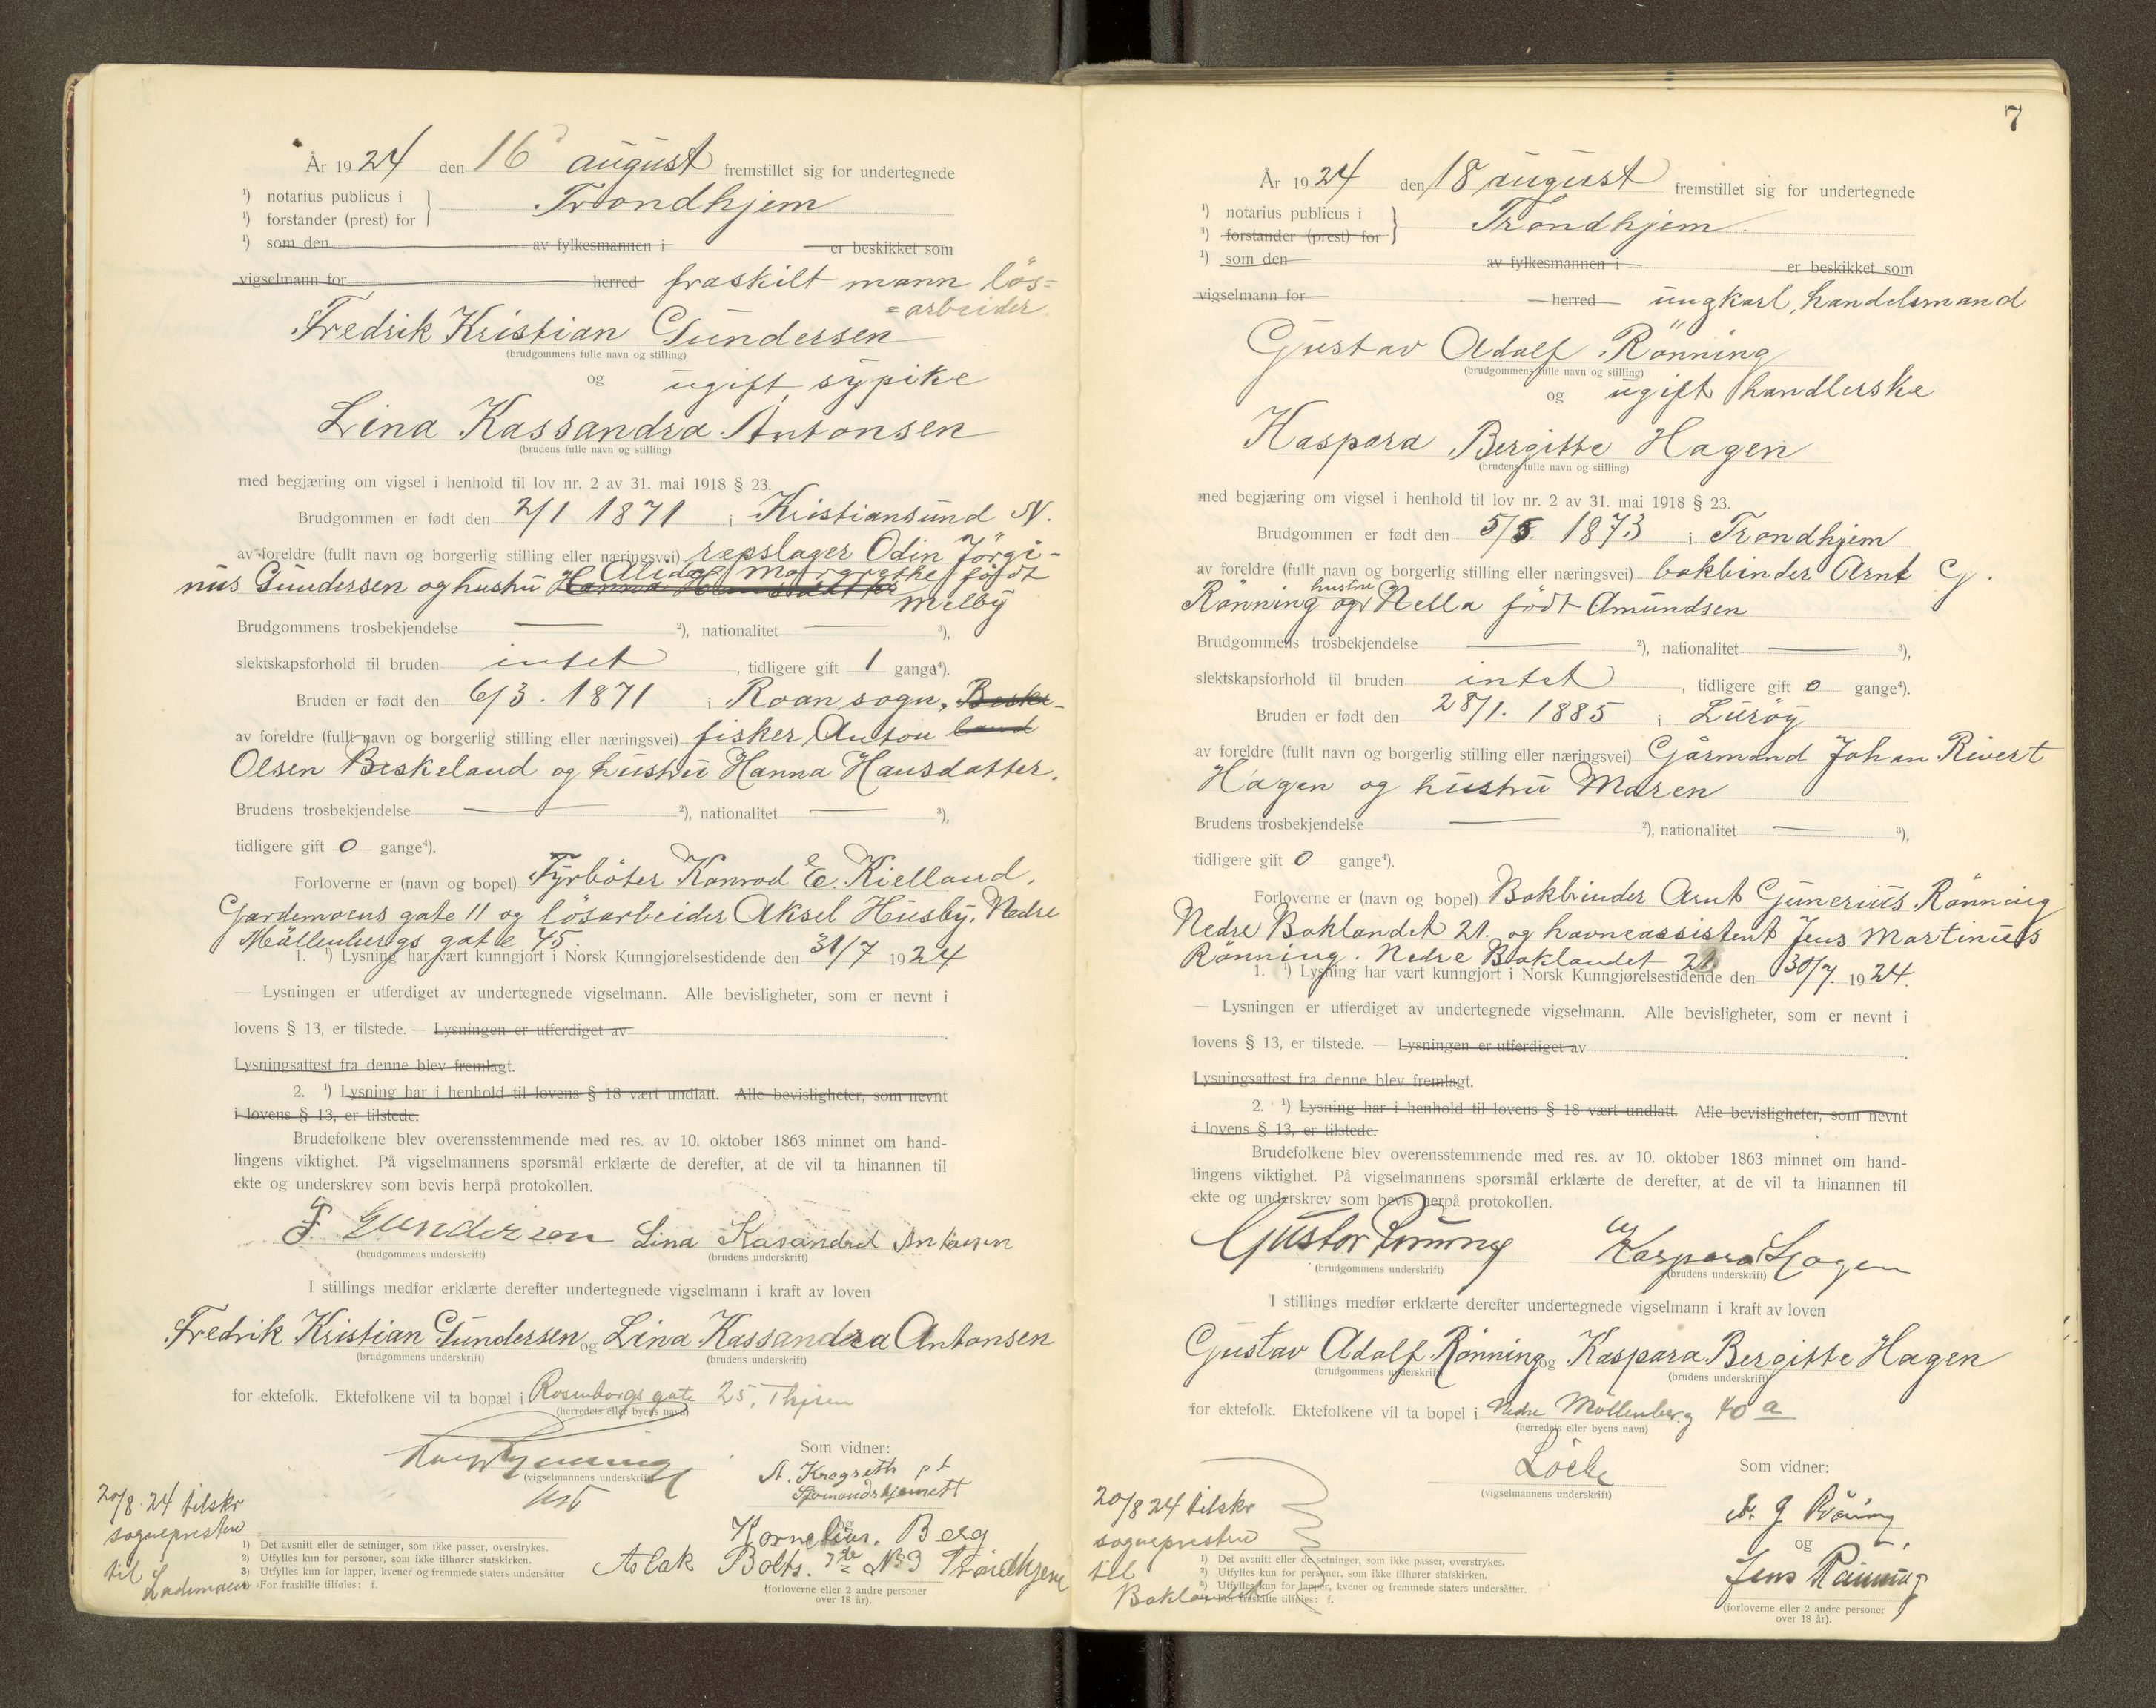 År 1924 den 16 august fremstillet sig for undertegnede
¹) notarius publicus i } Trondhjem
¹) forstander (prest) for
¹) som den av fylkesmannen i er beskikket som
vigselmann for herred fraskilt mann lös=
=arbeider.
Fredrik Kristian Gundersen
(brudgommens fulle navn og stilling)
og ugift, sypike
Lina Kassandra Antonsen
(brudens fulle navn og stilling)
med begjæring om vigsel i henhold til lov nr. 2 av 31. mai 1918 § 23.
Brudgommen er født den 2/1 1871 i Kristiansund N.
av foreldre (fullt navn og borgerlig stilling eller næringsvei) repslager Odin Jörgi-
nus Gundersen og hustru Hanna Hansdatter Alida Margrethe født
Melby
Brudgommens trosbekjendelse — ²), nationalitet — ³),
slektskapsforhold til bruden intet, tidligere gift 1 gange⁴).
Bruden er født den 6/3. 1871 i Roan sogn, Beske-
av foreldre (fullt navn og borgerlig stilling eller næringsvei) fisker Anton land
Olsen Beskeland og hustru Hanna Hansdatter.
Brudens trosbekjendelse — ²), nationalitet — ³),
tidligere gift 0 gange⁴).
Forloverne er (navn og bopel) Fyrböter Konrad E. Kielland,
Gardemoens gate 11 og lösarbeider Aksel Husby, Nedre
Möllenbergs gate 45.
1. ¹) Lysning har vært kunngjort i Norsk Kunngjørelsestidende den 31/7 1924
— Lysningen er utferdiget av undertegnede vigselmann. Alle bevisligheter, som er nevnt i
lovens § 13, er tilstede. — Lysningen er utferdiget av
Lysningsattest fra denne blev fremlagt.
2. ¹) Lysning har i henhold til lovens § 18 vært undlatt. Alle bevisligheter, som nevnt
i lovens § 13, er tilstede.
Brudefolkene blev overensstemmende med res. av 10. oktober 1863 minnet om hand-
lingens viktighet. På vigselmannens spørsmål erklærte de derefter, at de vil ta hinannen til
ekte og underskrev som bevis herpå protokollen.
F. Gundersen Lina Kasandra Antonsen
(brudgommens underskrift) (brudens underskrift)
I stillings medfør erklærte derefter undertegnede vigselmann i kraft av loven
Fredrik Kristian Gundersen og Lina Kassandra Antonsen
(brudgommens underskrift) (brudens underskrift)
for ektefolk. Ektefolkene vil ta bopæl i Rosenborgs gate 25, Thjem
(herredets eller byens navn)
Som vidner:
(vigselmannens underskrift)
og
Kornelius. Berg
Aslak Bolts. gte No 9 Trondhjem
(forloverne eller 2 andre personer
over 18 år).
20/8.24 tilskr
sognepresten
til
Lademoen
1) Det avsnitt eller de setninger, som ikke passer, overstrykes.
2) Utfylles kun for personer, som ikke tilhører statskirken.
3) Utfylles kun for lapper, kvener og fremmede staters undersåtter
For fraskilte tilføies: f.
7
År 1924 den 18 august fremstillet sig for undertegnede
¹) notarius publicus i } Trondhjem.
¹) forstander (prest) for
¹) som den av fylkesmannen i er beskikket som
vigselmann for herred ungkarl, handelsmand
Gustav Adolf Rönning
(brudgommens fulle navn og stilling)
og ugift handlerske
Kaspara Bergitte Hagen
(brudens fulle navn og stilling)
med begjæring om vigsel i henhold til lov nr. 2 av 31. mai 1918 § 23.
Brudgommen er født den 5/5. 1873 i Trondhjem
av foreldre (fullt navn og borgerlig stilling eller næringsvei) bokbinder Arnt G.
Rönning og hustru Nella född Amundsen
Brudgommens trosbekjendelse — ²), nationalitet — ³),
slektskapsforhold til bruden intet, tidligere gift 0 gange⁴).
Bruden er født den 28/1. 1885 i Luröy
av foreldre (fullt navn og borgerlig stilling eller næringsvei) Gårmand Johan Rivert
Hagen og hustru Maren
Brudens trosbekjendelse — ²), nationalitet — ³),
tidligere gift 0 gange⁴).
Forloverne er (navn og bopel) Bokbinder Arnt Gunerius Rönning
Nedre Baklandet 21. og havneassistent Jens Martinus
Rönning. Nedre Baklandet 21.
1. ¹) Lysning har vært kunngjort i Norsk Kunngjørelsestidende den 30/7. 1924.
— Lysningen er utferdiget av undertegnede vigselmann. Alle bevisligheter, som er nevnt i
lovens § 13, er tilstede. — Lysningen er utferdiget av
Lysningsattest fra denne blev fremlagt.
2. ¹) Lysning har i henhold til lovens § 18 vært undlatt. Alle bevisligheter, som nevnt
i lovens § 13, er tilstede.
Brudefolkene blev overensstemmende med res. av 10. oktober 1863 minnet om hand-
lingens viktighet. På vigselmannens spørsmål erklærte de derefter, at de vil ta hinannen til
ekte og underskrev som bevis herpå protokollen.
Gustav Rönning Kaspara Hagen
(brudgommens underskrift) (brudens underskrift)
I stillings medfør erklærte derefter undertegnede vigselmann i kraft av loven
Gustav Adolf Rönning og Kaspara Bergitte Hagen
(brudgommens underskrift) (brudens underskrift)
for ektefolk. Ektefolkene vil ta bopel i Nedre Möllenberg 40 a
(herredets eller byens navn)
Löche
(vigselmannens underskrift)
Som vidner:
A. G. Röning
og
Jens Rönning
(forloverne eller 2 andre personer
over 18 år).
20/8 24 tilskr
sognepresten
til
Baklandet
¹) Det avsnitt eller de setninger, som ikke passer, overstrykes.
²) Utfylles kun for personer, som ikke tilhører statskirken.
³) Utfylles kun for lapper, kvener og fremmede staters undersåtter.
For fraskilte tilføies: f.